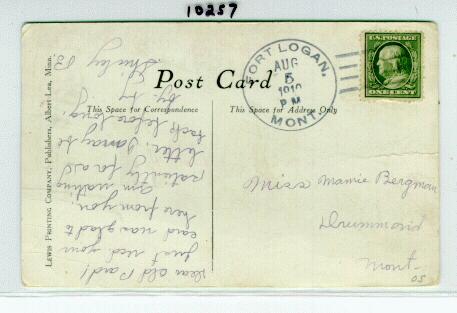 10257
LEWIS PRINTING COMPANY, Publishers, Albert Lea, Minn.
Post Card
This Space for Correspondence
This Space for Address Only
FORT LOGAN,
AUG
5
1910
P M
MONT.
U.S. POSTAGE
ONE CENT
Dear old Pard!
Just recd. your
card was glad to
here from you.
Am waiting
patiently for a
letter. I may be
back before long.
by. by
Shirley
Miss Mamie Bergman
Drummond
Mont-
05